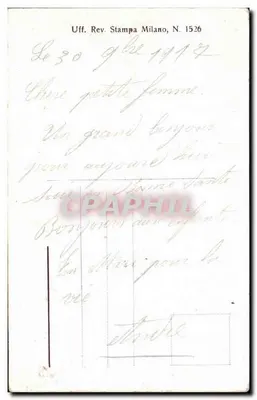 Uff. Rev. Stampa Milano, N. 1526
Le 30 9bre 1917
Chere petite femme.
Un grand bonjour
pour aujourd hui
bonne santé
Bonjours aux enfants
Ton Mari pour la
vie
André
CPAPHIL